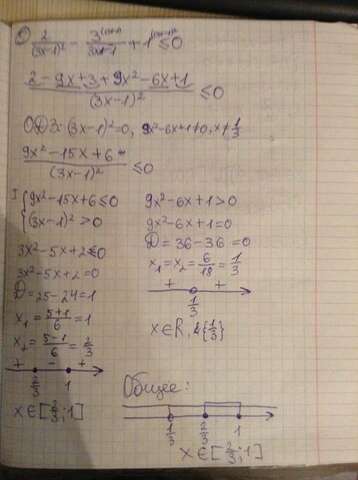 ① 2/(3x-1)² - 3^(3x-1)/(3x-1) + 1^((3x-1)²) ≤0
(2-9x+3+9x²-6x+1)/(3x-1)² ≤0
ОДЗ: (3x-1)²=0, 9x²-6x+1≠0, x≠1/3
(9x²-15x+6)/(3x-1)² ≤0
I {9x²-15x+6≤0
{(3x-1)²>0
3x²-5x+2≤0
3x²-5x+2=0
D=25-24=1
x₁=(5+1)/6=1
x₂=(5-1)/6=2/3
+ - +
2/3 1
x∈[2/3;1]
9x²-6x+1>0
9x²-6x+1=0
D=36-36=0
x₁=x₂=6/18=1/3
+ +
1/3
x∈R, {1/3}
Общее:
1/3 2/3 1
x∈[2/3;1]